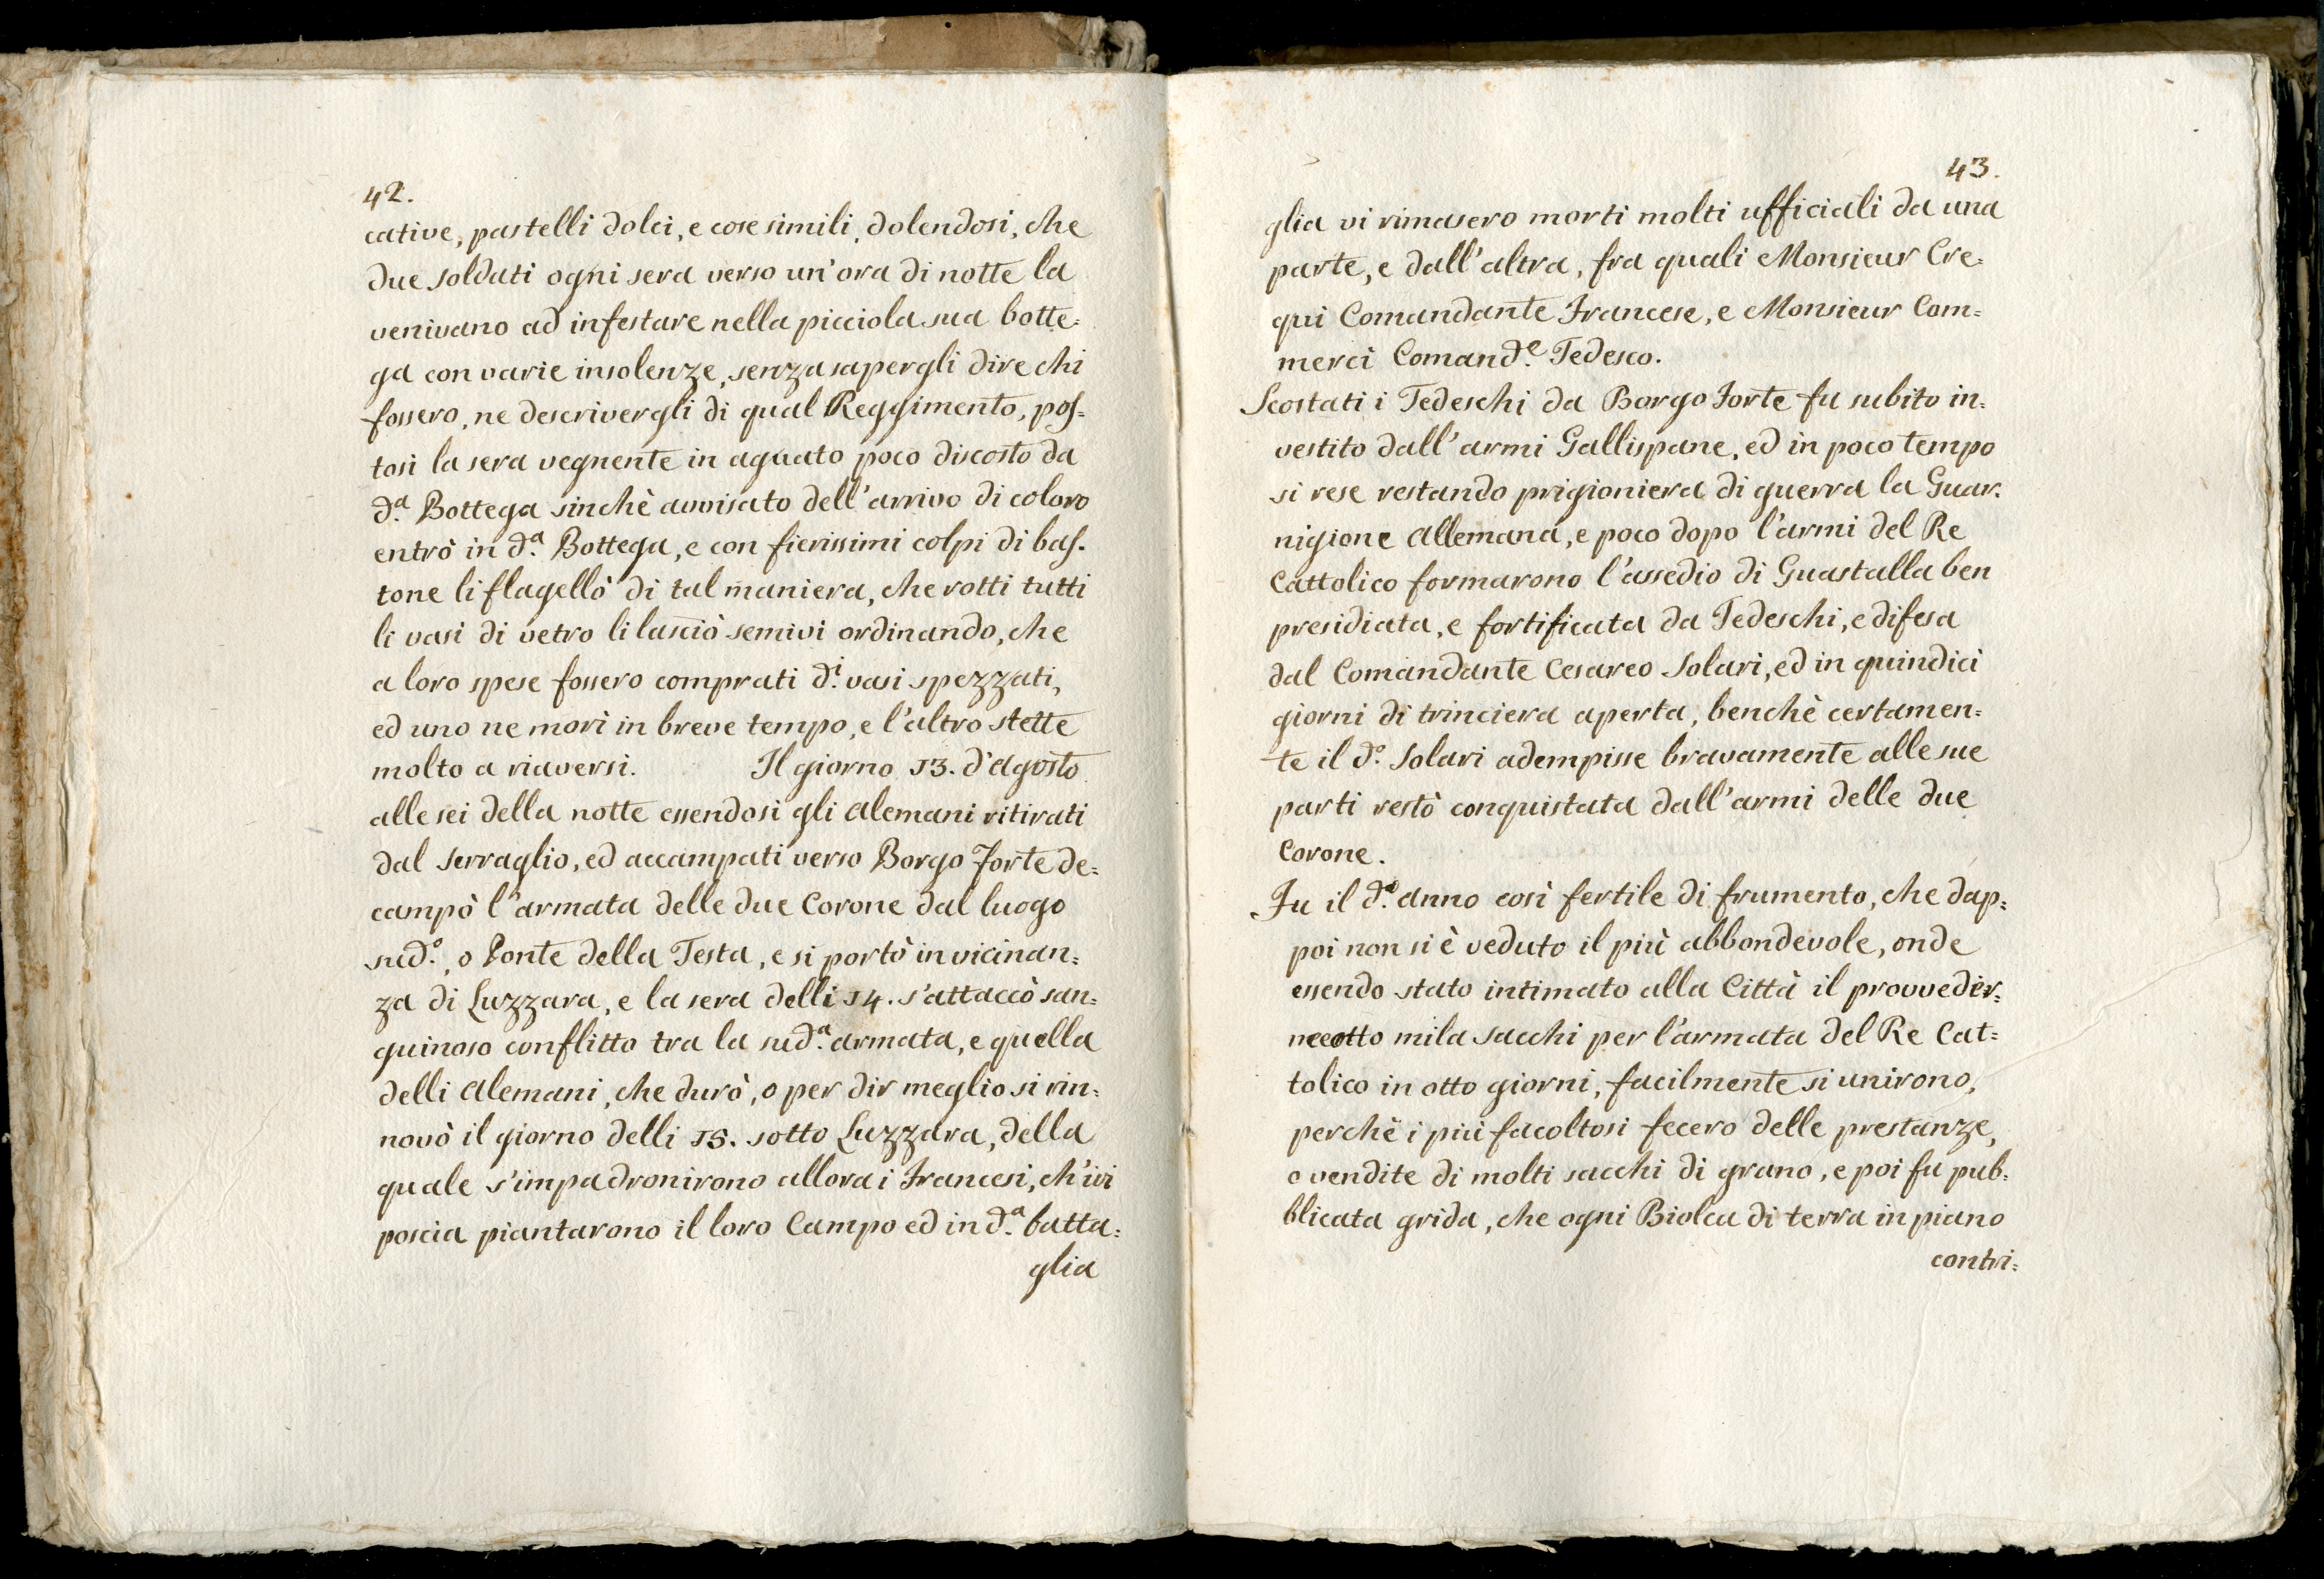 42.
cative, pastelli dolci, e cose simili, dolendosi, che
due soldati ogni sera verso un'ora di notte la
venivano ad infestare nella picciola sua botte=
ga con varie insolenze, senza sapergli dire chi
fossero, ne descrivergli di qual Reggimento, pos=
tosi la sera vegnente in aguato poco discosto da
d.ª Bottega sinchè avvisato dell'arrivo di coloro
entrò in d.ª Bottega, e con fierissimi colpi di bas=
tone li flagellò di tal maniera, che rotti tutti
li vasi di vetro li lasciò semivi ordinando, che
a loro spese fossero comprati d.i vasi spezzati,
ed uno ne morì in breve tempo, e l'altro stette
molto a riaversi. Il giorno 13. d'Agosto
alle sei della notte essendosi gli Alemani ritirati
dal Serraglio, ed accampati verso Borgo Forte de=
campò l'armata delle due Corone dal luogo
sud.º, o Ponte della Testa, e si portò in vicinan=
za di Luzzara, e la sera delli 14. s'attaccò san=
guinoso conflitto tra la sud.ª armata, e quella
delli Alemani, che durò, o per dir meglio si rin=
novò il giorno delli 15. sotto Luzzara, della
quale s'impadronirono allora i Francesi, ch'ivi
poscia piantarono il loro Campo ed in d.ª batta=
glia
43.
glia vi rimasero morti molti ufficiali da una
parte, e dall'altra, fra quali Monsieur Cre=
qui Comandante Francese, e Monsieur Com=
merci Comand.e Tedesco.
Scostati i Tedeschi da Borgo Forte fu subito in=
vestito dall'armi Gallispane, ed in poco tempo
si rese restando prigioniera di guerra la Guar=
nigione Allemana, e poco dopo l'armi del Re
Cattolico formarono l'assedio di Guastalla ben
presidiata, e fortificata da Tedeschi, e difesa
dal Comandante Cesareo Solari, ed in quindici
giorni di trinciera aperta, benchè certamen=
te il d.º Solari adempisse bravamente alle sue
parti restò conquistata dall'armi delle due
Corone.
Fu il d.º anno così fertile di frumento, che dap=
poi non si è veduto il più abbondevole, onde
essendo stato intimato alla Città il provveder=
ne otto mila sacchi per l'armata del Re Cat=
tolico in otto giorni, facilmente si unirono,
perchè i più facoltosi fecero delle prestanze,
o vendite di molti sacchi di grano, e poi fu pub=
blicata grida, che ogni Biolca di terra in piano
contri=